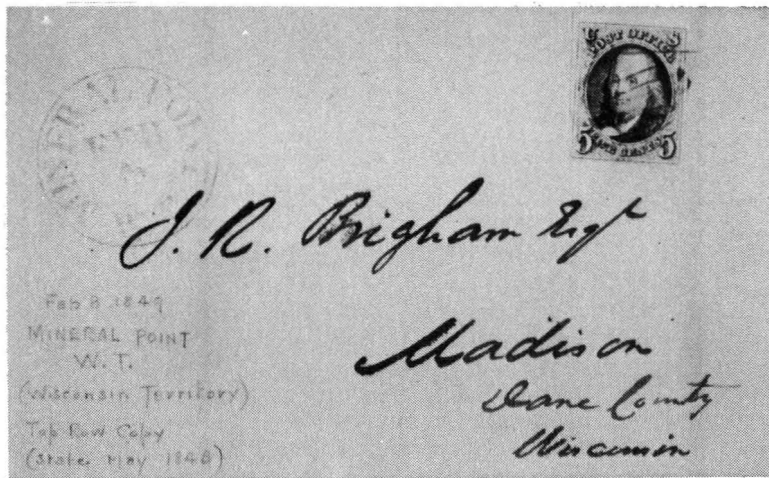 POST OFFICE
FIVE CENTS
MINERAL POINT
J. R. Brigham Esqr
Madison
Dane County
Wisconsin
Feb 8 1849
MINERAL POINT
W. T.
(Wisconsin Territory)
Top Row Copy
(State May 1848)